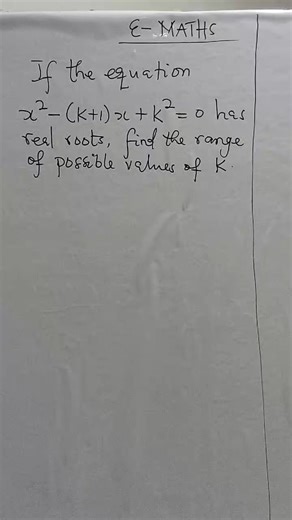 E-MATHS
If the equation
x² - (k+1)x + k² = 0 has
real roots, find the range
of possible values of K.